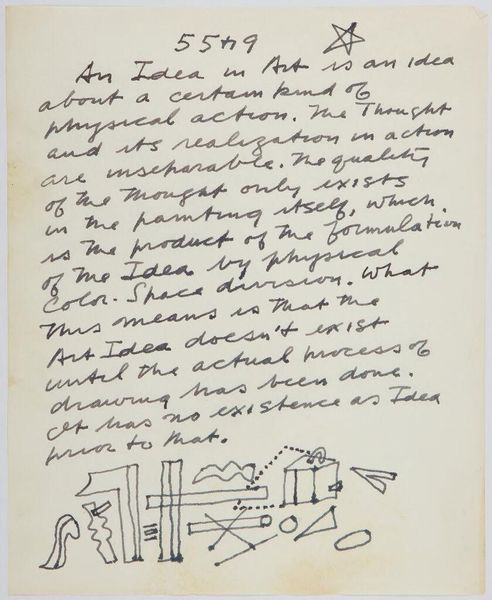 55th 9
An Idea in Art is an idea
about a certain kind of
physical action. The Thought
and its realization in action
are inseparable. The quality
of the thought only exists
in the painting itself, which
is the product of the formulation
of the Idea by physical
Color-Space division. What
this means is that the
Art Idea doesn't exist
until the actual process of
drawing has been done.
It has no existence as Idea
prior to that.